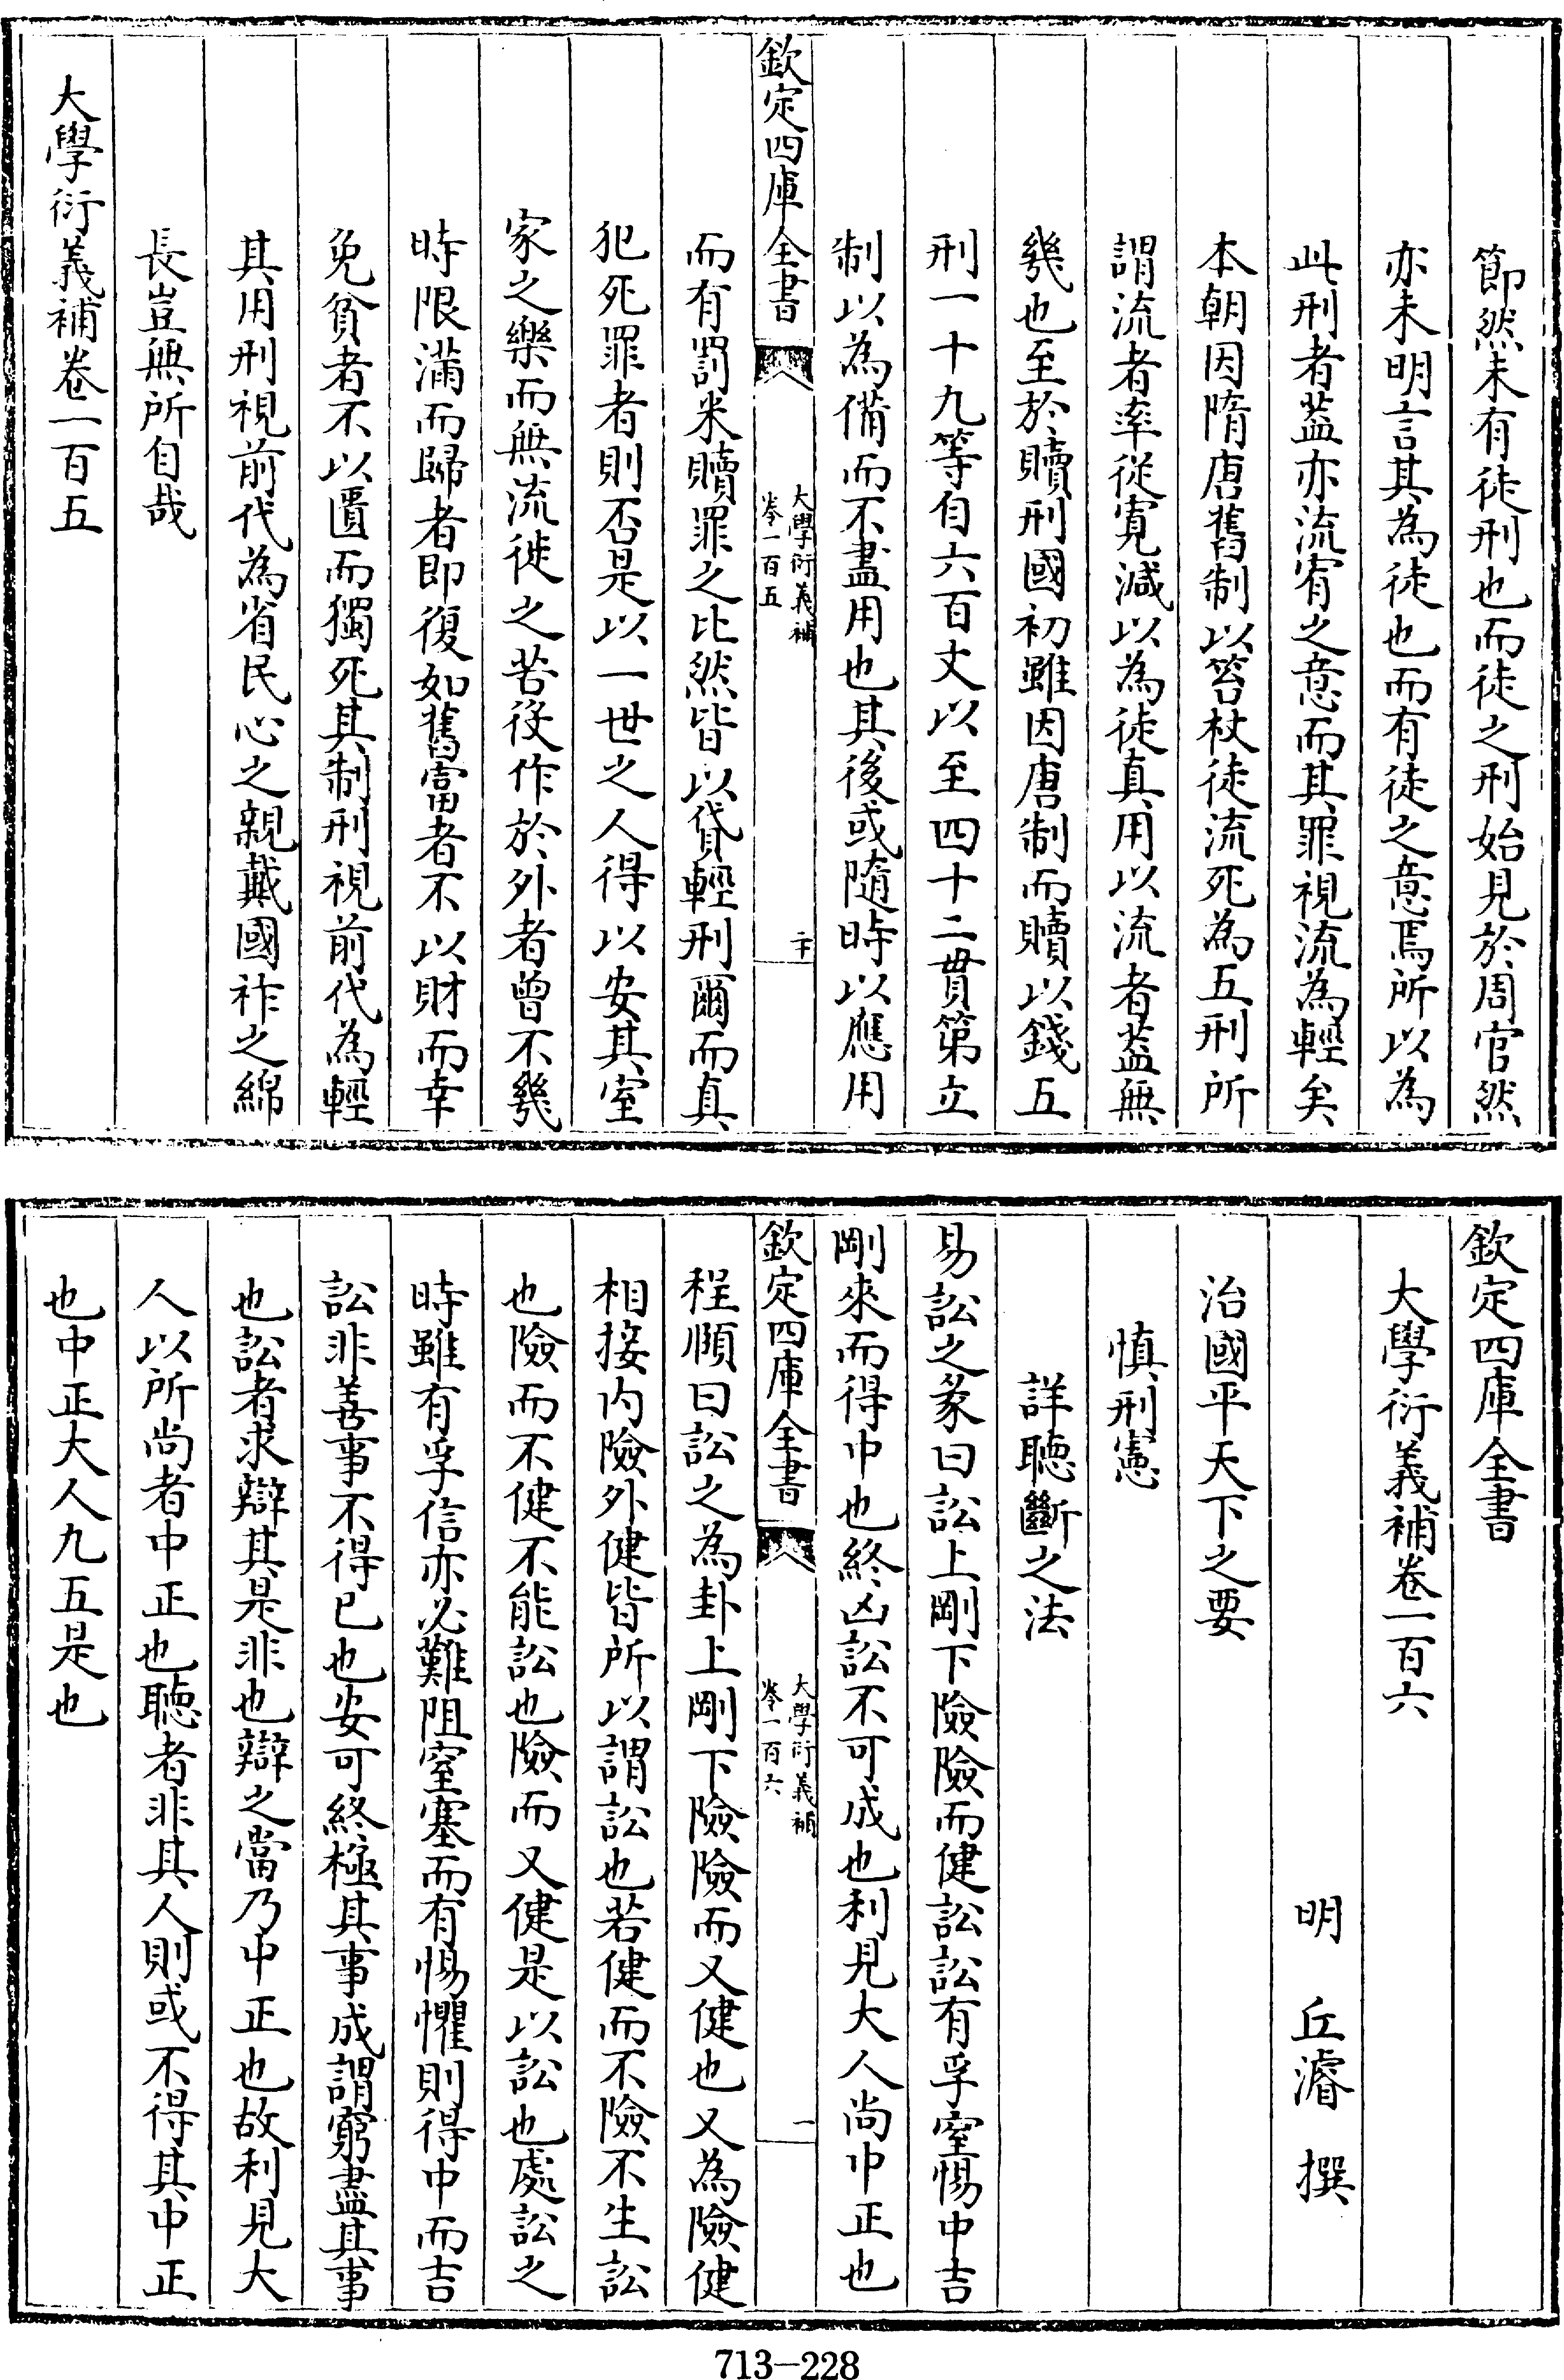 節然未有徒刑也而徒之刑始見於周官然
亦未明言其為徒也而有徒之意焉所以為
此刑者葢亦流宥之意而其罪視流為輕矣
本朝因隋唐舊制以笞杖徒流死為五刑所
謂流者率從寛減以為徒真用以流者葢無
幾也至於贖刑國初雖因唐制而贖以錢五
刑一十九等自六百文以至四十二貫第立
制以為備而不盡用也其後或隨時以應用
欽定四庫全書
大學衍義補
卷一百五
二十
而有罰米贖罪之比然皆以貸輕刑爾而真
犯死罪者則否是以一世之人得以安其室
家之樂而無流徙之苦役作於外者曾不幾
時限滿而歸者即復如舊富者不以財而幸
免貧者不以匱而獨死其制刑視前代為輕
其用刑視前代為省民心之親戴國祚之綿
長豈無所自哉
大學衍義補卷一百五
欽定四庫全書
大學衍義補卷一百六
明 丘濬 撰
治國平天下之要
慎刑憲
詳聽斷之法
易訟之彖曰訟上剛下險險而健訟訟有孚窒惕中吉
剛來而得中也終凶訟不可成也利見大人尚中正也
欽定四庫全書
大學衍義補
卷一百六
一
程頤曰訟之為卦上剛下險險而又健也又為險健
相接内險外健皆所以謂訟也若健而不險不生訟
也險而不健不能訟也險而又健是以訟也處訟之
時雖有孚信亦必難阻窒塞而有惕懼則得中而吉
訟非善事不得已也安可終極其事成謂窮盡其事
也訟者求辯其是非也辯之當乃中正也故利見大
人以所尚者中正也聽者非其人則或不得其中正
也中正大人九五是也
713-228